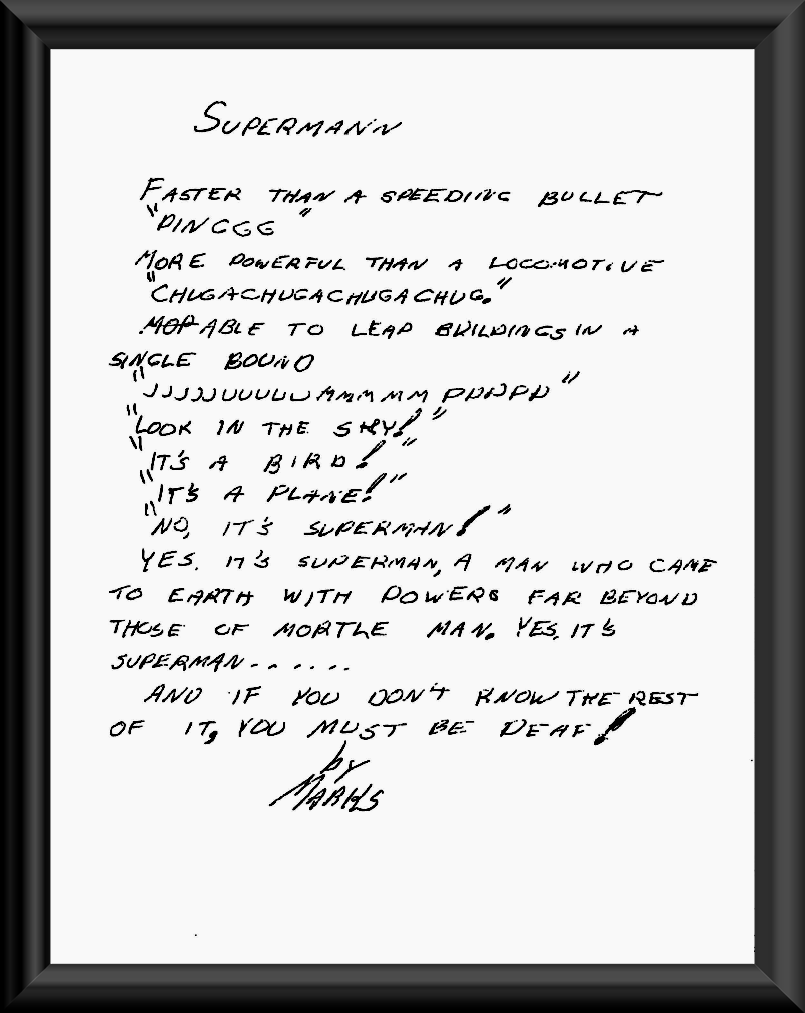 SUPERMANN
FASTER THAN A SPEEDING BULLET
"PINGGG"
MORE POWERFUL THAN A LOCOMOTIVE
"CHUGACHUGACHUGACHUG."
ABLE TO LEAP BUILDINGS IN A
SINGLE BOUND
"JJJJJUUUUUMMMMMPPPPP"
"LOOK IN THE SKY!"
"IT'S A BIRD!"
"IT'S A PLANE!"
"NO, IT'S SUPERMAN!"
YES. IT'S SUPERMAN, A MAN WHO CAME
TO EARTH WITH POWERS FAR BEYOND
THOSE OF MORTLE MAN. YES, IT'S
SUPERMAN......
AND IF YOU DON'T KNOW THE REST
OF IT, YOU MUST BE DEAF!
by
MARKS